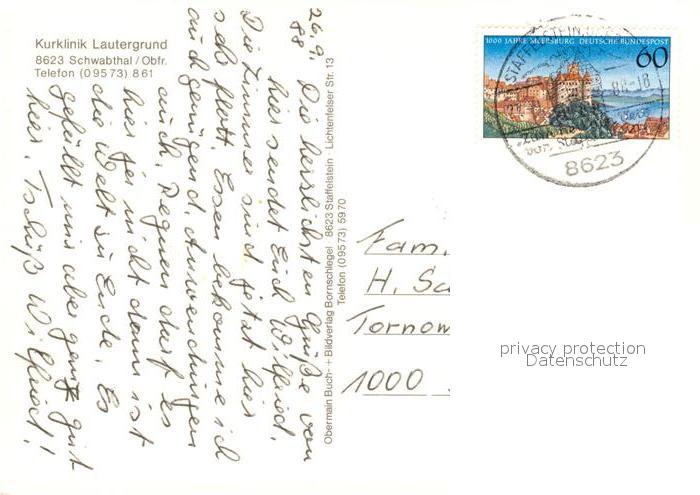 Kurklinik Lautergrund
8623 Schwabthal / Obfr.
Telefon (09573) 861
26.9.
88
Die herzlichsten Grüße von
hier sendet Euch Wilfried.
Die Zimmer sind jetzt hier
sehr flott. Essen bekomme ich
auch genügend. Anwendungen
auch. Regnen darf es
hier ja nicht dann ist
die Welt zu Ende. Es
gefällt mir aber ganz gut
hier. Tschüß Wilfried!
Obermain Buch- + Bildverlag Bornschlegel · 8623 Staffelstein · Lichtenfelser Str. 13
Telefon (09573) 5970
1000 JAHRE MEERSBURG DEUTSCHE BUNDESPOST
60
STAFFELSTEIN
88-18
8623
Fam.
H.
Tornow
1000
privacy protection
Datenschutz